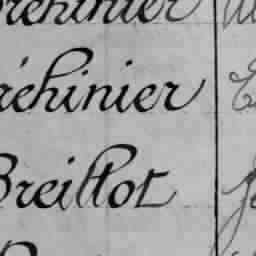 réhinier
réhinier
Breillot